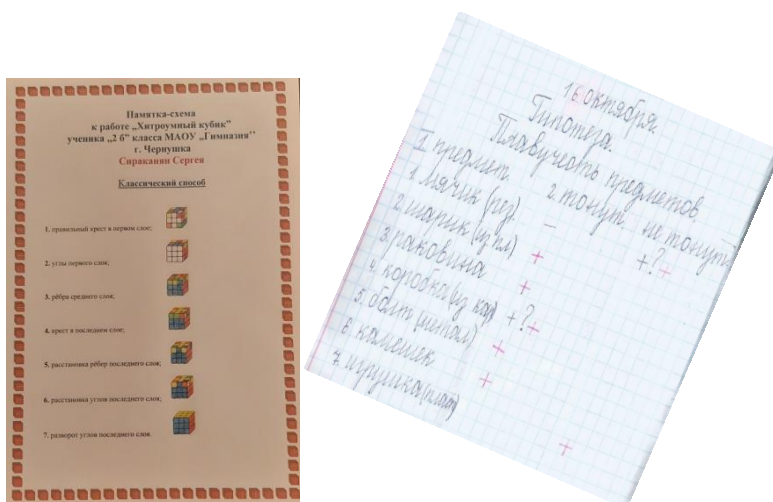 Памятка-схема
к работе „Хитроумный кубик”
ученика „2 б” класса МАОУ „Гимназия”
г. Чернушка
Сираканян Сергея
Классический способ
1. правильный крест в первом слое;
2. углы первого слоя;
3. рёбра среднего слоя;
4. крест в последнем слое;
5. расстановка рёбер последнего слоя;
6. расстановка углов последнего слоя;
7. разворот углов последнего слоя.
16 октября.
Гипотеза.
Плавучесть предметов.
1. предмет. 2. тонут. не тонут.
1. мячик (рез) – +?+
2. шарик (из пл) +
3. раковина +
4. коробка (из кар) +?+
5. болт (метал) +
6. камешек +
7. игрушка (плас) +